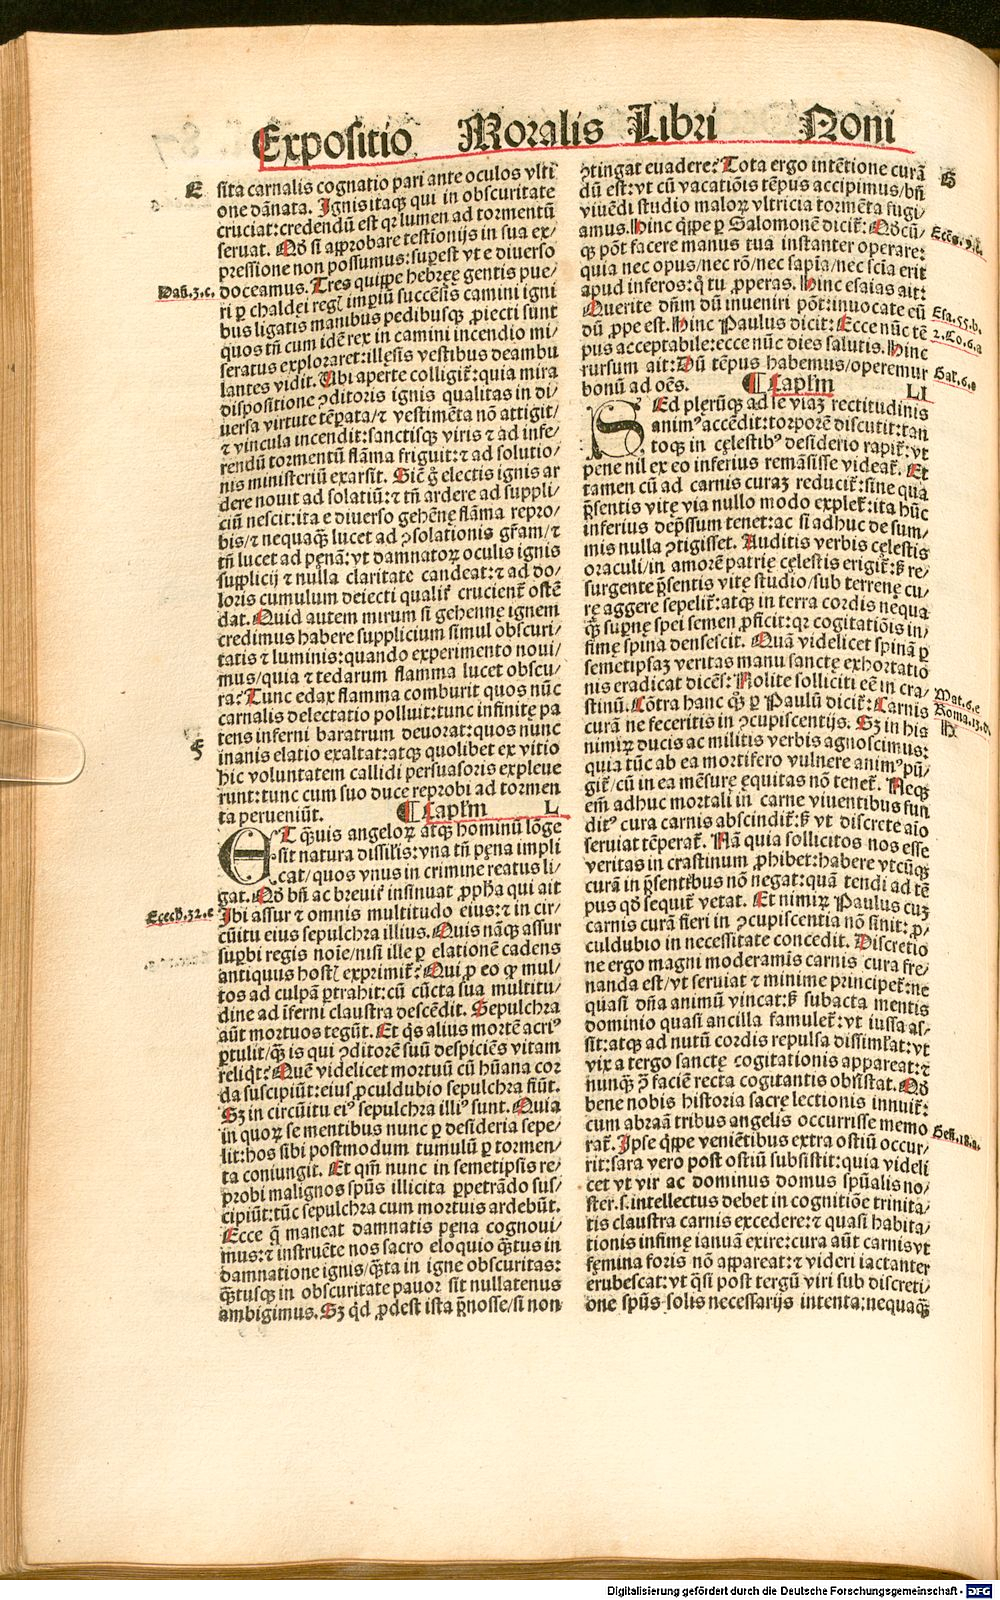 Expositio Moralis Libri Noni
E
sita carnalis cognatio pari ante oculos vlti
one dānata. Ignis itaqꝫ qui in obscuritate
cruciat: credendū est qꝛ lumen ad tormentū
seruat. Qd̄ si approbare testionijs in sua ex/
pressione non possumus: supest vt e diuerso
Dañ. 3. c.
doceamus. Tres quippe hebręę gentis pue/
ri ꝑ chaldei regꝭ imꝑiū succēsis camini igni
bus ligatis manibus pedibusqꝫ ꝓiecti sunt
quos tñ cum idē rex in camini incendio mi/
seratus exploraret: illęsis vestibus deambu
lantes vidit. Ubi aperte colligit᷑: quia mira
dispositione ꝯditoris ignis qualitas in di/
uersa virtute tēpata/⁊ vestimēta nō attigit/
⁊ vincula incendit: sanctisqꝫ viris ⁊ ad infe/
rendū tormentū flāma friguit: ⁊ ad solutio/
nis ministeriū exarsit. Sic̄ g̊ electis ignis ar
dere nouit ad solatiū: ⁊ tñ ardere ad suppli/
ciū nescit: ita e diuerso gehēnę flāma repro/
bis/⁊ nequaq̄ꝫ lucet ad ꝯsolationis gr̄am/⁊
tñ lucet ad pęnā: vt damnatoꝝ oculis ignis
supplicij ⁊ nulla claritate candeat: ⁊ ad do/
loris cumulum deiecti qualit᷑ crucient᷑ ostē
dat. Quid autem mirum si gehennę ignem
credimus habere supplicium simul obscuri/
tatis ⁊ luminis: quando experimento noui/
mus/quia ⁊ tedarum flamma lucet obscu/
ra? Tunc edax flamma comburit quos nūc
carnalis delectatio polluit: tunc infinitę pa
tens inferni baratrum deuorat: quos nunc
F
inanis elatio exaltat: atqꝫ quolibet ex vitio
hic voluntatem callidi persuasoris expleue
runt: tunc cum suo duce reprobi ad tormen
ta perueniūt. ¶ Caplm̄ L
ET q̄ꝫuis angeloꝝ atqꝫ hominū lōge
sit natura dissilis: vna tñ pęna impli
cat/quos vnus in crimine reatus li/
gat. Qd̄ bñ ac breuit᷑ insinuat ꝓpha qui ait
Ecech. 32. e
Ibi assur ⁊ omnis multitudo eius: ⁊ in cir/
cūitu eius sepulchra illius. Quis nāqꝫ assur
supbi regis noīe/nisi ille ꝑ elationē cadens
antiquus hostꝭ exprimit᷑? Qui ꝓ eo qꝙ mul/
tos ad culpā ꝑtrahit: cū cūcta sua multitu/
dine ad iferni claustra descēdit. Sepulchra
aūt mortuos tegūt. Et q̄s alius mortē acri⁹
ꝑtulit/q̄ꝫ is qui ꝯditorē suū despiciēs vitam
reliq̄t? Quē videlicet mortuū cū hūana cor
da suscipiūt: eius ꝓculdubio sepulchra fiūt.
Sꝫ in circūitu ei⁹ sepulchra illi⁹ sunt. Quia
in quoꝝ se mentibus nunc ꝑ desideria sepe/
lit: hos sibi postmodum tumulū ꝑ tormen/
ta coniungit. Et qm̄ nunc in semetipsis re/
probi malignos spūs illicita ꝑpetrādo sus/
cipiūt: tūc sepulchra cum mortuis ardebūt.
Ecce q̄ maneat damnatis pęna cognoui/
mus: ⁊ instruēte nos sacro eloquio q̄ꝫtus in
damnatione ignis/q̄ꝫta in igne obscuritas:
q̄ꝫtusqꝫ in obscuritate pauor sit nullatenus
ambigimus. Sꝫ qd̄ ꝓdest ista p̄nosse/si non
G
ꝯtingat euadere? Tota ergo intētione curā
dū est: vt cū vacatiōis tēpus accipimus/bñ
viuēdi studio maloꝝ vltricia tormēta fugi/
amus. Hinc q̄ppe ꝑ Salomonē dicit᷑: Qd̄cū/
Eccs. 9. c.
qꝫ pōt facere manus tua instanter operare:
quia nec opus/nec rō/nec sapīa/nec scīa erit
apud inferos: q̊ tu ꝓperas. Hinc esaias ait:
Esa. 55. b.
Querite dñm dū inueniri pōt: inuocate eū
dū ꝓpe est. Hinc Paulus dicit: Ecce nūc tē
2. Co. 6. a
pus acceptabile: ecce nūc dies salutis. Hinc
rursum ait: Dū tēpus habemus/operemur
Gal᷑. 6. e
bonū ad oēs. ¶ Caplm̄ LI
SEd plęrūqꝫ ad se viaꝫ rectitudinis
anim⁹ accēdit: torporē discutit: tan
toqꝫ in cęlestib⁹ desiderio rapit᷑: vt
pene nil ex eo inferius remāsisse videat᷑. Et
tamen cū ad carnis curaꝫ reducit᷑: sine qua
p̄sentis vitę via nullo modo explet᷑: ita hūc
inferius dep̄ssum tenet: ac si adhuc de sum/
mis nulla ꝯtigisset. Auditis verbis cęlestis
oraculi/in amorē patrię cęlestis erigit᷑: sꝫ re/
surgente p̄sentis vitę studio/sub terrenę cu/
rę aggere sepelit᷑: atqꝫ in terra cordis nequa
q̄ꝫ supnę spei semen ꝓficit: qꝛ cogitatiōis in/
fimę spina densescit. Quā videlicet spinā ꝑ
semetipsaꝫ veritas manu sanctę exhortatiō
nis eradicat dicēs: Nolite solliciti eē in cra/
Mat. 6. e
stinū. Cōtra hanc q̊ꝫ ꝑ Paulū dicit᷑: Carnis
Roma. 13. d.
curā ne feceritis in ꝯcupiscentijs. Sꝫ in his
H
nimiꝝ ducis ac militis verbis agnoscimus:
quia tūc ab ea mortifero vulnere anim⁹ pū/
git᷑/cū in ea mēsurę equitas nō tenet᷑. Neqꝫ
em̄ adhuc mortali in carne viuentibus fun
dit⁹ cura carnis abscindit᷑: sꝫ vt discrete aīo
seruiat tēperat᷑. Nā quia sollicitos nos esse
veritas in crastinum ꝓhibet: habere vtcūqꝫ
curā in p̄sentibus nō negat: quā tendi ad tē
pus qd̄ sequit᷑ vetat. Et nimiꝝ Paulus cuꝫ
carnis curā fieri in ꝯcupiscentia nō sinit: ꝓ/
culdubio in necessitate concedit. Discretio
ne ergo magni moderamis carnis cura fre/
nanda est/vt seruiat ⁊ minime principet᷑: ne
quasi dñā animū vincat: sꝫ subacta mentis
dominio quasi ancilla famulet᷑: vt iussa as/
sit: atqꝫ ad nutū cordis repulsa dissimlat: vt
vix a tergo sanctę cogitationis appareat: ⁊
nunq̄ꝫ p̄ faciē recta cogitantis obsistat. Qd̄
bene nobis historia sacrę lectionis innuit᷑:
cum abraā tribus angelis occurrisse memo
Geñ. 18. a.
rat᷑. Ipse q̄ppe veniētibus extra ostiū occur/
rit: sara vero post ostiū subsistit: quia videli
cet vt vir ac dominus domus spūalis no/
ster. s. intellectus debet in cognitiōe trinita/
tis claustra carnis excedere: ⁊ quasi habita/
tionis infimę ianuā exire: cura aūt carnis vt
fęmina foris nō appareat: ⁊ videri iactanter
erubescat: vt q̄si post tergū viri sub discreti/
one spūs solis necessarijs intenta: nequaq̄ꝫ
Digitalisierung gefördert durch die Deutsche Forschungsgemeinschaft - DFG